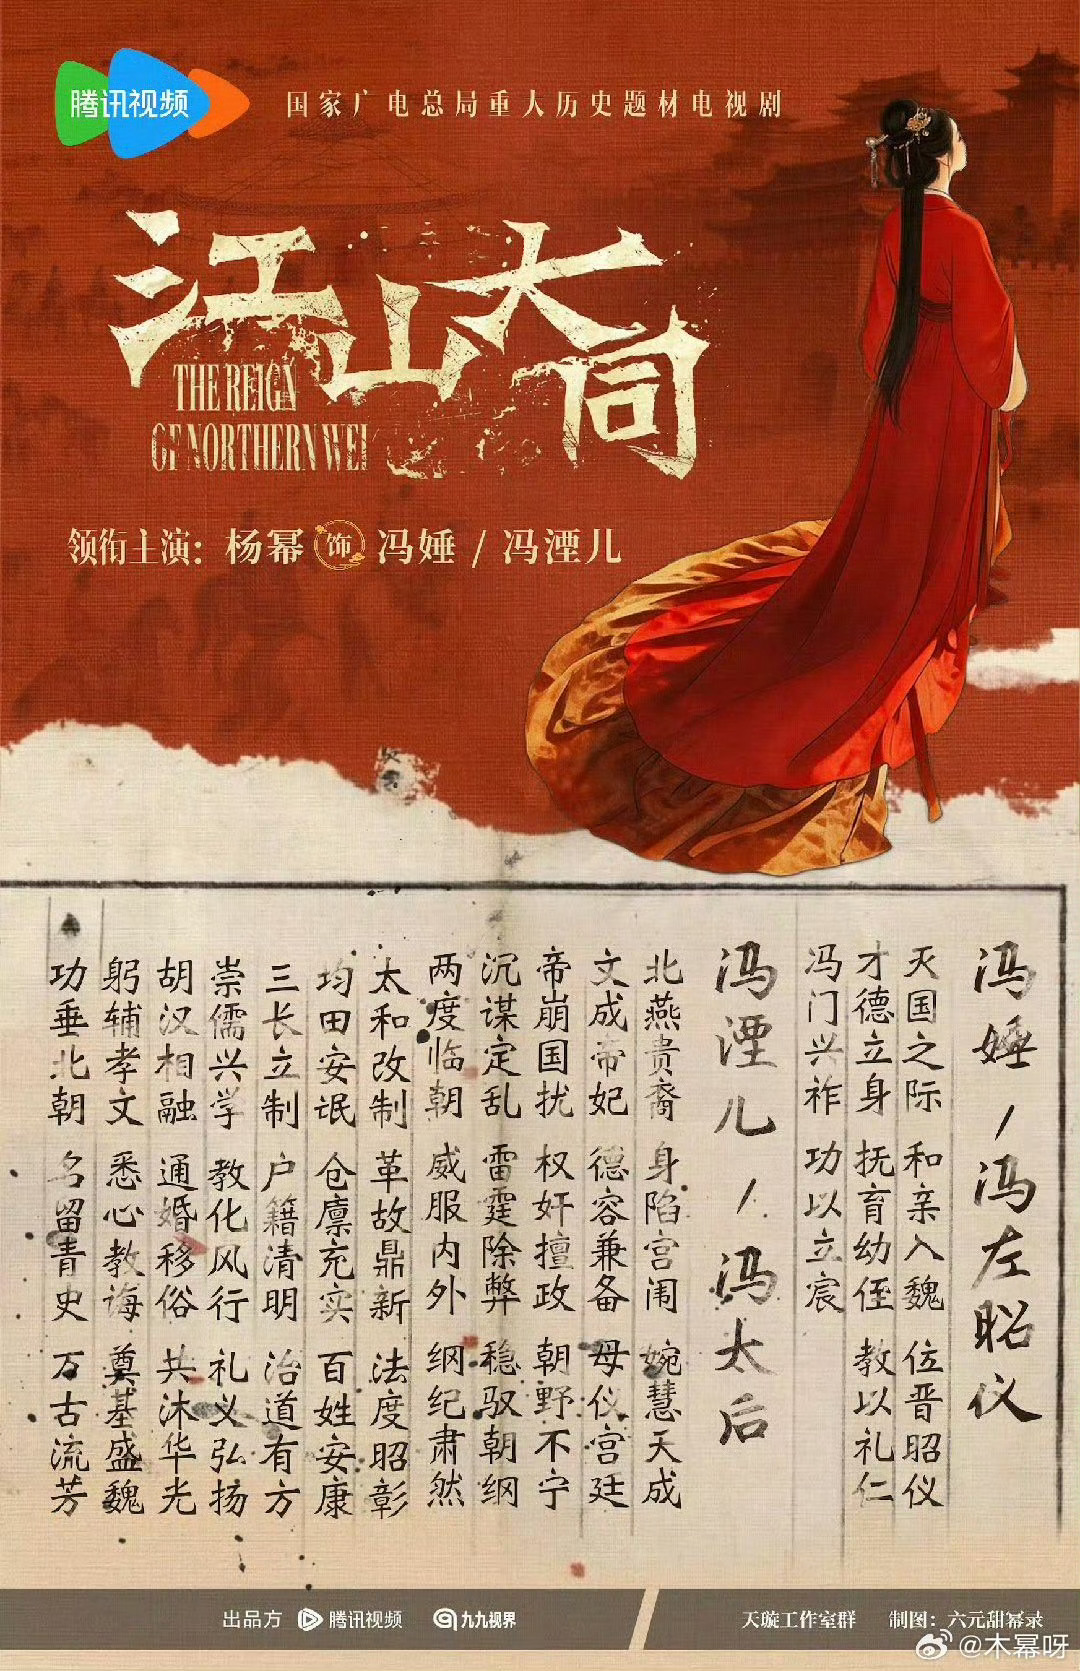 腾讯视频
国家广电总局重大历史题材电视剧
江山大同
THE REIGN
OF NORTHERN WEI
领衔主演：杨幂 饰 冯娷 / 冯湮儿
冯娷 / 冯左昭仪
灭国之际 和亲入魏 位晋昭仪
才德立身 抚育幼侄 教以礼仁
冯门兴祚 功以立宸
冯湮儿 / 冯太后
北燕贵裔 身陷宫闱 婉慧天成
文成帝妃 德容兼备 母仪宫廷
帝崩国扰 权奸擅政 朝野不宁
沉谋定乱 雷霆除弊 稳驭朝纲
两度临朝 威服内外 纲纪肃然
太和改制 革故鼎新 法度昭彰
均田安氓 仓廪充实 百姓安康
三长立制 户籍清明 治道有方
崇儒兴学 教化风行 礼义弘扬
胡汉相融 通婚移俗 共沐华光
躬辅孝文 悉心教诲 奠基盛魏
功垂北朝 名留青史 万古流芳
出品方 腾讯视频 九九视界
天璇工作室群 制图：六元甜幂录
@木幂呀